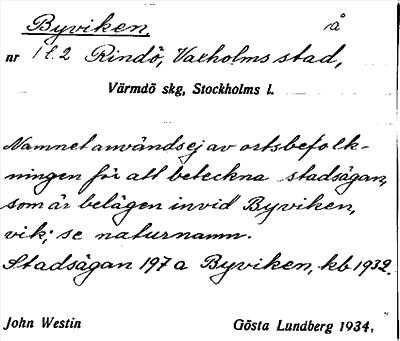 Byviken, å
nr 1 l. 2 Rindö, Vaxholms stad,
Värmdö skg, Stockholms l.
Namnet användsej av ortsbefolk-
ningen för att beteckna stadsägan,
som är belägen invid Byviken,
vik; se naturnamn.
Stadsägan 197 a Byviken, kb 1932.
John Westin Gösta Lundberg 1934,